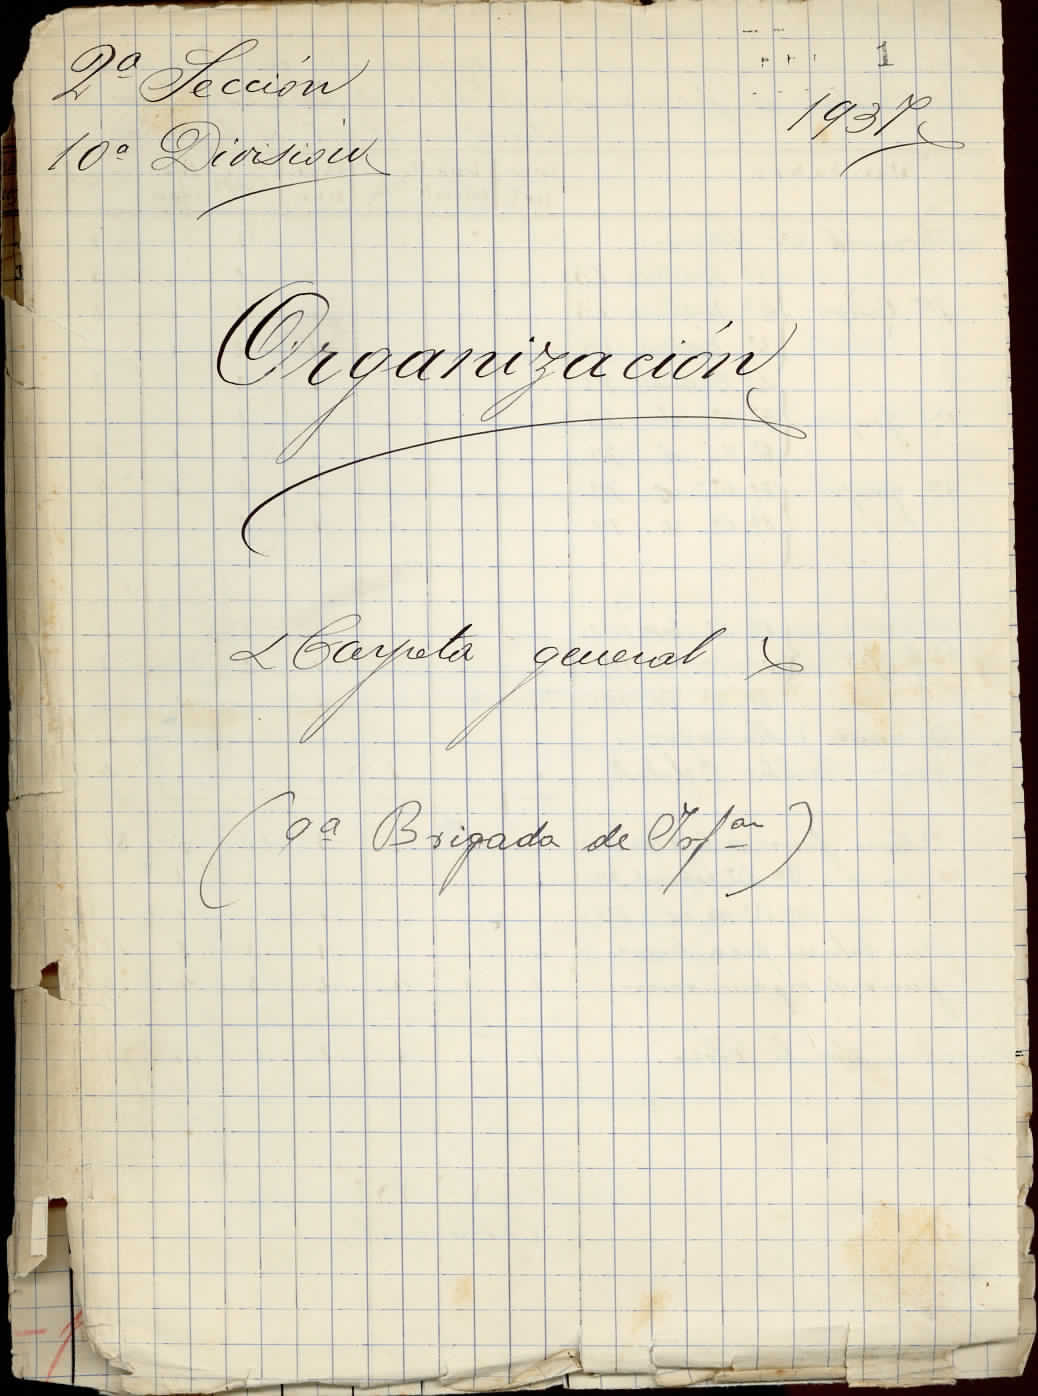 2ª Sección
1
1937
10ª División
Organización
Carpeta general
(9ª Brigada de Infª)